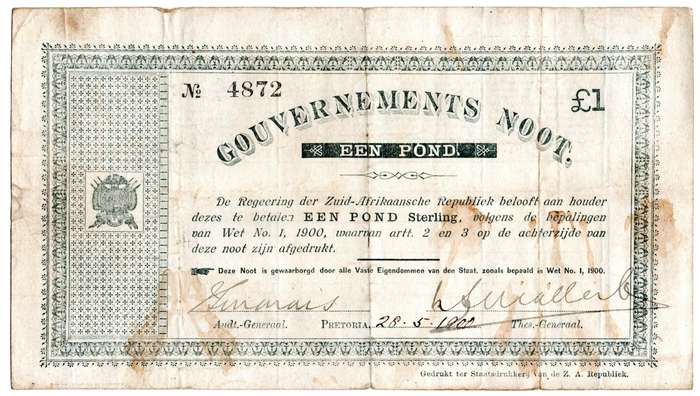 № 4872
£1
GOUVERNEMENTS NOOT.
EEN POND.
De Regeering der Zuid-Afrikaansche Republiek belooft aan houder
dezes te betalen EEN POND Sterling, volgens de bepalingen
van Wet No. 1, 1900, waarvan artt. 2 en 3 op de achterzijde van
deze noot zijn afgedrukt.
Deze Noot is gewaarborgd door alle Vaste Eigendommen van den Staat. zooals bepaald in Wet No. 1, 1900.
Audt.-Generaal. PRETORIA, 28-5-1900 Thes.-Generaal.
Gedrukt ter Staatsdrukkerij van de Z. A. Republiek.